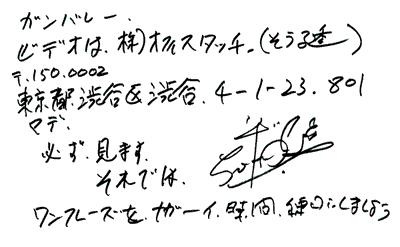 ガンバレー.
ビデオは、株)オフィスタッチ.(そうる透)
〒.150.0002
東京都.渋谷区渋谷.4-1-23.801
マデ.
必ず.見ます.
それでは.
ワンフレーズを.ながーイ.時.間.練習にしましょう